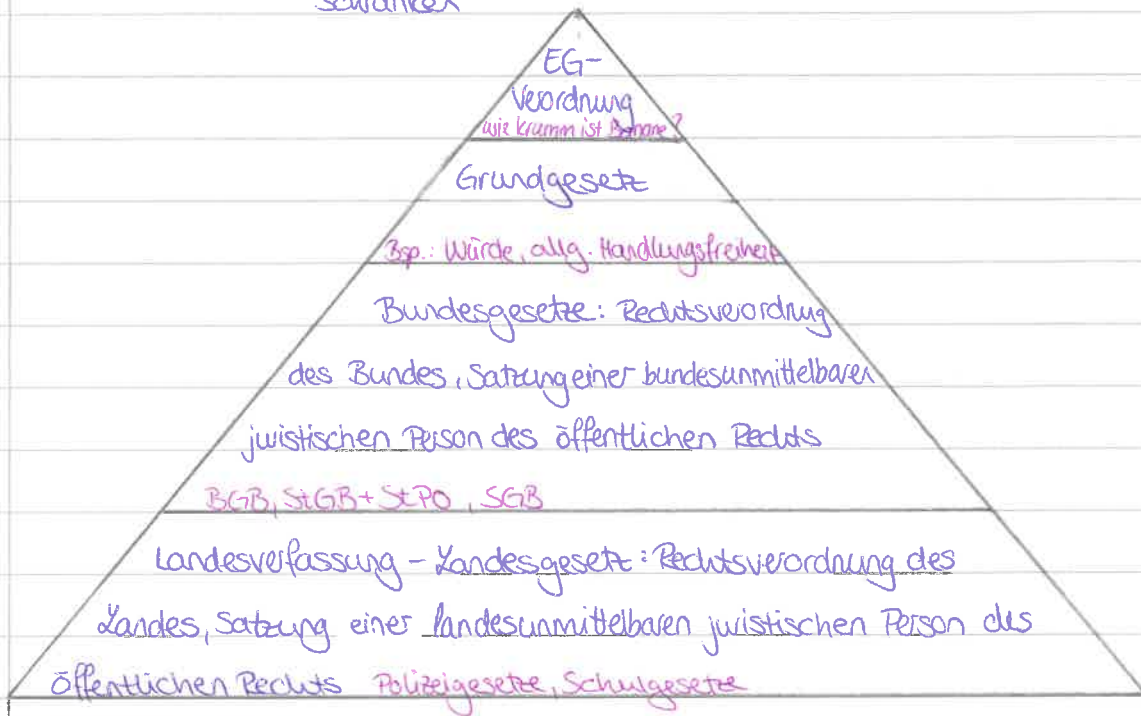 schranken
EG-
Verordnung
wie krumm ist Banane?
Grundgesetz
Bsp.: Würde, allg. Handlungsfreiheit
Bundesgesetze: Rechtsverordnung
des Bundes, Satzung einer bundesunmittelbaren
juristischen Person des öffentlichen Rechts
BGB, StGB + StPO, SGB
Landesverfassung - Landesgesetz: Rechtsverordnung des
Landes, Satzung einer landesunmittelbaren juristischen Person des
öffentlichen Rechts Polizeigesetze, Schulgesetze